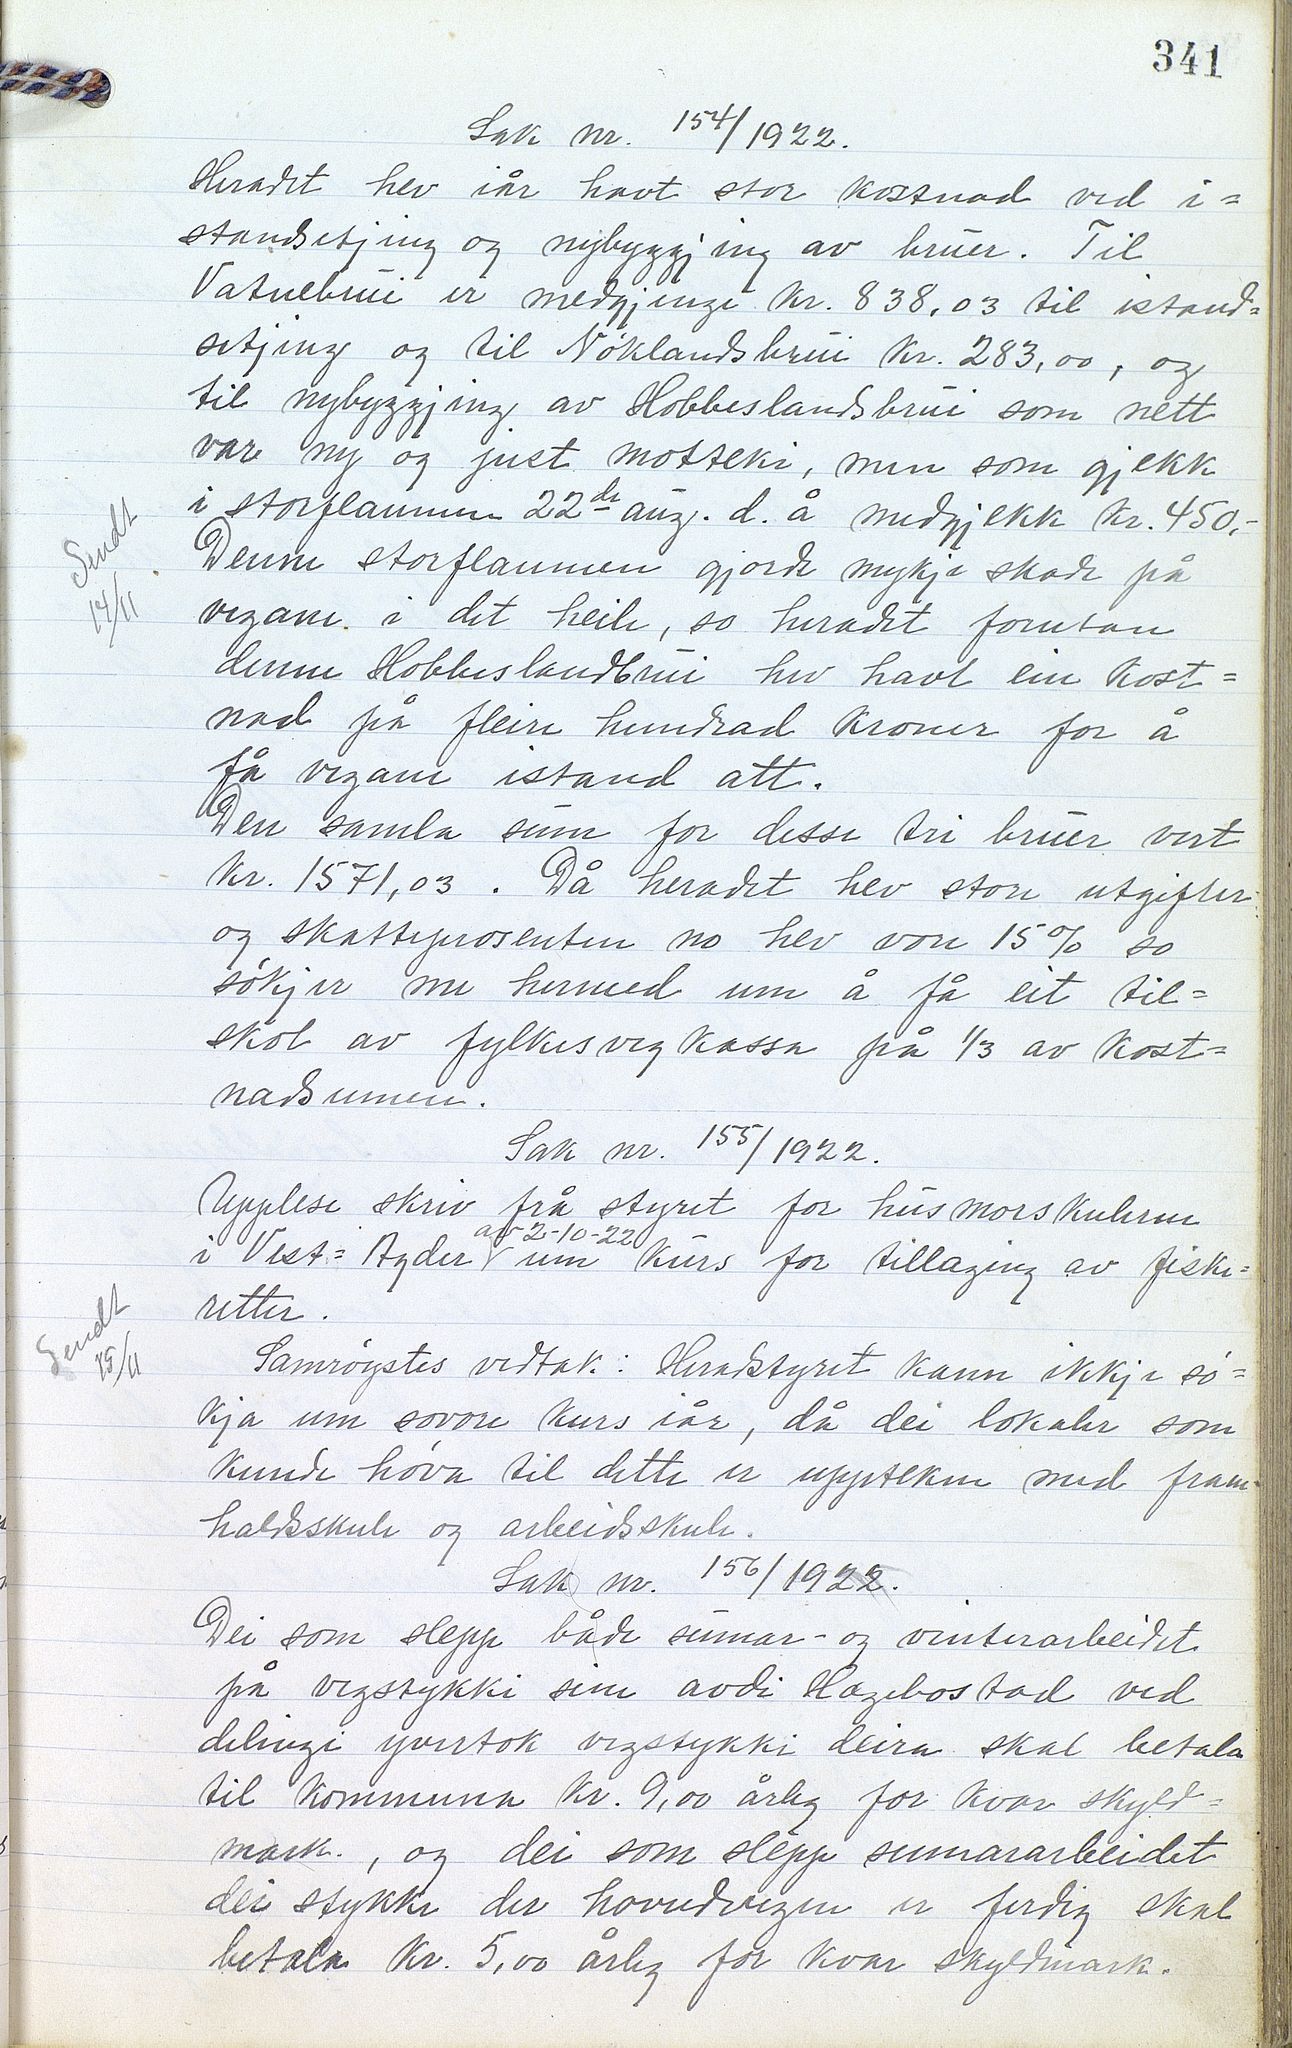 341
Sak nr. 154/1922.
Heradet hev iår havt stor kostnad ved i=
standsetjing og nybyggjing av bruer. Til
Vatnebrui er medgjengi kr. 838,03 til istand=
setjing og til Nöklandsbrui kr. 283,00, og
til nybyggjing av Hobbeslandsbrui som nett
var ny og just motteki, men som gjekk
i storflaumen 22de aug. d. å medgjekk kr. 450,-
Sendt
14/11
Denne storflaumen gjorde mykje skade på
vegane i det heile, so heradet forutan
denne Hobbeslandbrui hev havt ein kost=
nad på fleire hundrad kroner for å
få vegane istand att.
Den samla sum for desse tri bruer vert
kr. 1571,03. Då heradet hev store utgifter
og skatteprosenten no hev vore 15% so
sökjer me hermed um å få eit til=
skot av fylkesvegkassa på 1/3 av kost=
nadsumen.
Sak nr. 155/1922.
Upplese skriv frå styret for husmorskulerne
av 2-10-22
i Vest=Agder V um kurs for tillaging av fiske=
retter.
Sendt
15/11
Samröystes vedtak: Heradstyret kann ikkje sö=
kja um sovore kurs iår, då dei lokaler som
kunde höva til dette er upptekne med fram-
haldsskule og arbeidsskule.
Sak nr. 156/1922.
Dei som slepp både sumar- og vinterarbeidet
på vegstykki sine avdi Hægebostad ved
delingi yvertok vegstykki deira skal betala
til kommuna kr. 9,00 årleg for kvar skyld=
mark., og dei som slepp sumararbeidet
dei stykke der hovudvegen er ferdig skal
betala kr. 5,00 årleg for kvar skyldmark.